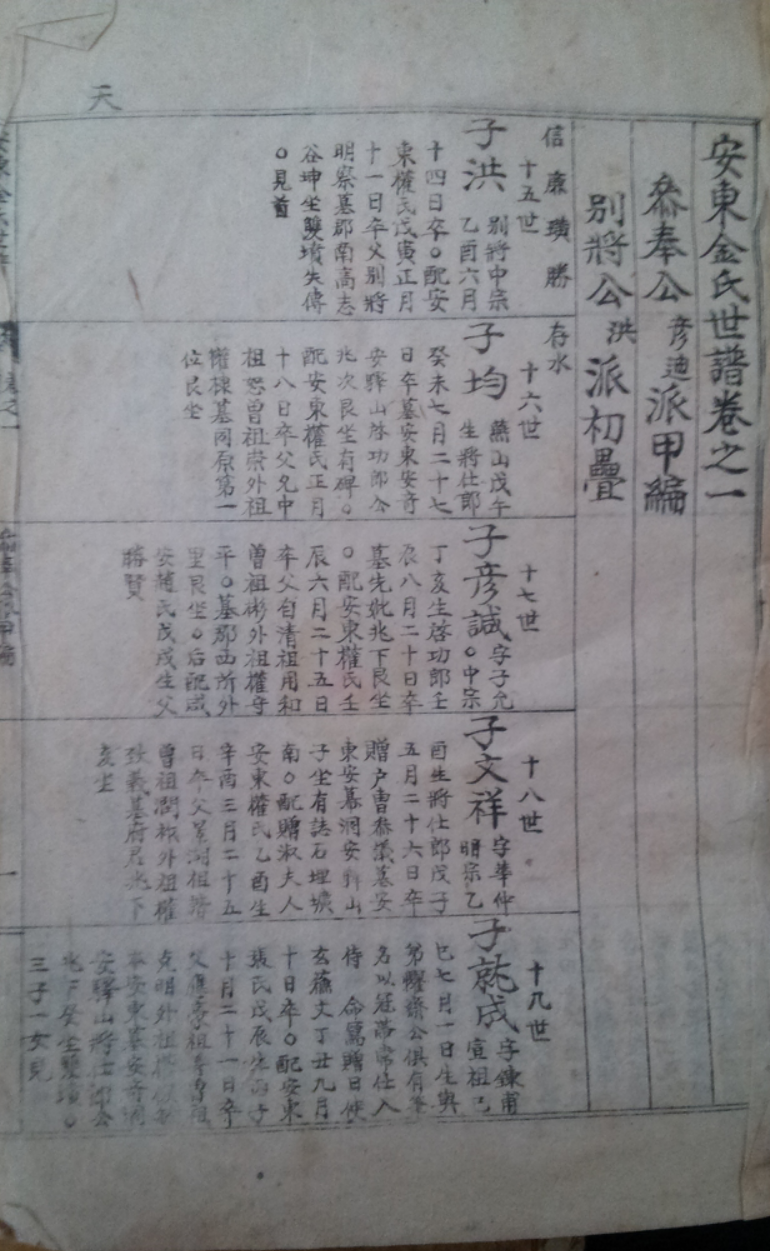 天
安東金氏世譜卷之一
叅奉公彦迪派甲編
別將公洪派初疊
信 廉 璜 勝
十五世
子洪 別將中宗
乙酉六月
十四日卒○配安
東權氏戊寅正月
十一日卒父別將
明察墓郡南高志
谷坤坐雙墳失傳
○見首
存水
十六世
子均 燕山戊午
生將仕郎
癸未七月二十七
日卒墓安東安奇
安驛山啓功郎公
兆次艮坐有碑○
配安東權氏正月
十八日卒父允中
祖恕曾祖崇外祖
權棟墓同原第一
位艮坐
十七世
子彦諴 字子允
○中宗
丁亥生啓功郎壬
辰八月二十日卒
墓先妣兆下艮坐
○配安東權氏壬
辰六月二十五日
卒父自清祖用和
曾祖彬外祖權守
平○墓郡西所外
里艮坐○后配咸
安趙氏戊戌生父
勝賢
十八世
子文祥 字華仲
明宗乙
酉生將仕郎戊子
五月二十六日卒
贈户曹叅議墓安
東安幕洞安驛山
子坐有誌石埋壙
南○配贈淑夫人
安東權氏乙酉生
辛酉三月二十五
日卒父 祖
曾祖潤 外祖權
致義墓府君兆下
亥坐
十九世
子就成 字鍊甫
宣祖己
巳七月一日生與
弟 齋公俱有筆
名以冠帶常仕入
侍 命萬贈日使
玄蘓丈丁丑九月
十日卒○配安東
張氏戊辰生丙子
十月二十一日卒
父應 祖 曾祖
克明外祖
安東墓安奇洞
安驛山將仕郎公
兆下癸坐雙墳○
三子一女見